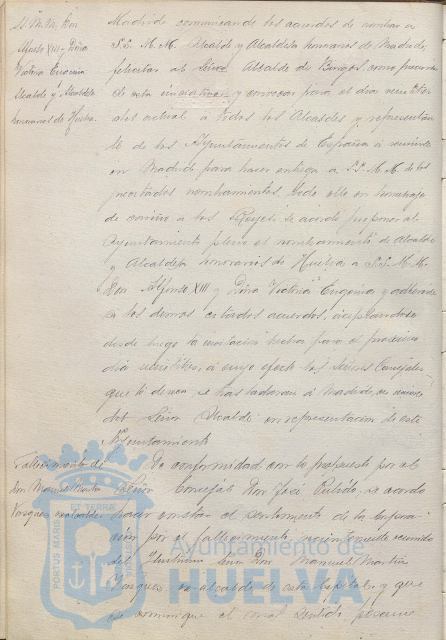 S.S. M.M. Don
Alfonso XIII y Doña
Victoria Eugenia
Alcalde y Alcaldesa
honorarios de Huelva.
Madrid comunicando los acuerdos de nombrar a
S.S. M.M. Alcalde y Alcaldesa honorarios de Madrid,
felicitar al Señor Alcalde de Burgos como
de esta iniciativa y convocar para el día
del actual a todos los Alcaldes y
de los Ayuntamientos de España a
en Madrid para hacer entrega a S.S. M.M. de los
nombramientos.
de cariño a los Reyes se acordó proponer al
Ayuntamiento pleno el nombramiento de Alcalde
y Alcaldesa honorarios de Huelva a S.S. M.M.
Don Alfonso XIII y Doña Victoria Eugenia y
a los demas citados acuerdos, aceptandose
desde luego la invitacion hecha para el proximo
día a cuyo efecto los Señores Concejales
que lo deseen se trasladaran a Madrid, en union
del Señor Alcalde en representacion de este
Ayuntamiento
Fallecimiento de
Don Manuel Martin
Vazquez exalcalde
De conformidad con lo propuesto por el
Señor Concejal Don José Pulido, se acordo
hacer constar el sentimiento de la Corpora-
ción por el fallecimiento, recientemente ocurrido
del Señor Don Manuel Martin
Vazquez ex alcalde de esta Capital y que
se comunique el mas sentido pesame
PORTUS MARIS ET TERRÆ
Ayuntamiento de
HUELVA